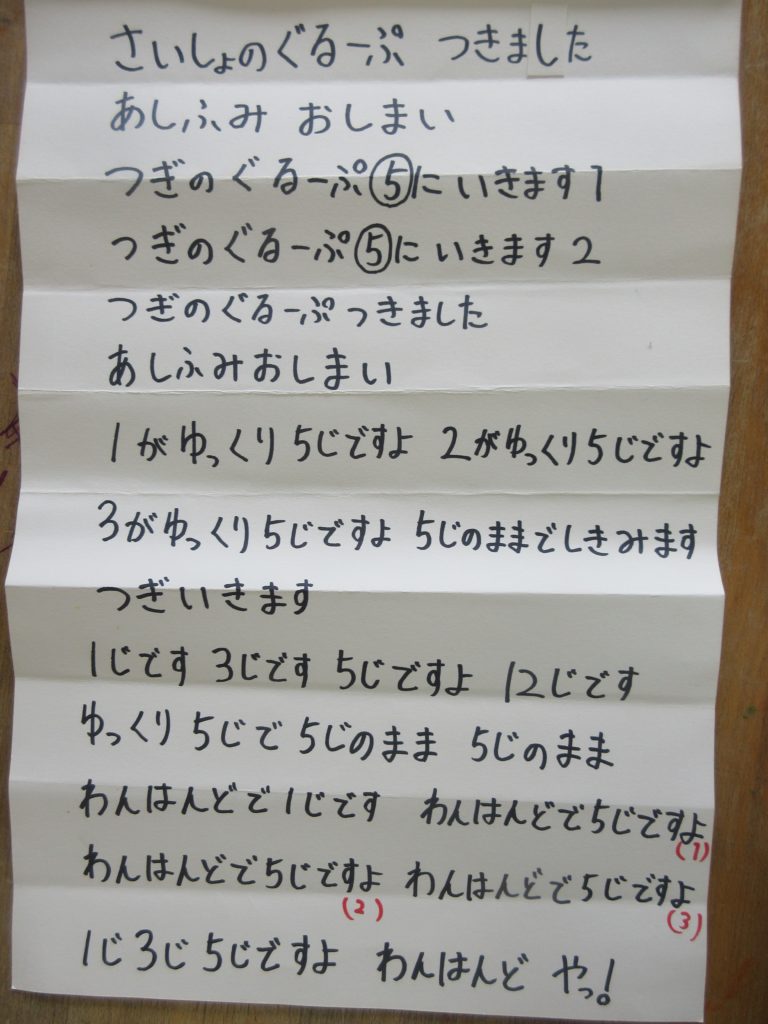 さいしょのぐるーぷ つきました
あしふみ おしまい
つぎのぐるーぷ⑤に いきます1
つぎのぐるーぷ⑤に いきます2
つぎのぐるーぷ つきました
あしふみおしまい
1がゆっくり5じですよ 2がゆっくり5じですよ
3がゆっくり5じですよ 5じのままでしきみます
つぎいきます
1じです 3じです 5じですよ 12じです
ゆっくり 5じで 5じのまま 5じのまま
わんはんどで1じです わんはんどで5じですよ
(1)
わんはんどで5じですよ わんはんどで5じですよ
(2) (3)
1じ 3じ 5じですよ わんはんど やっ!